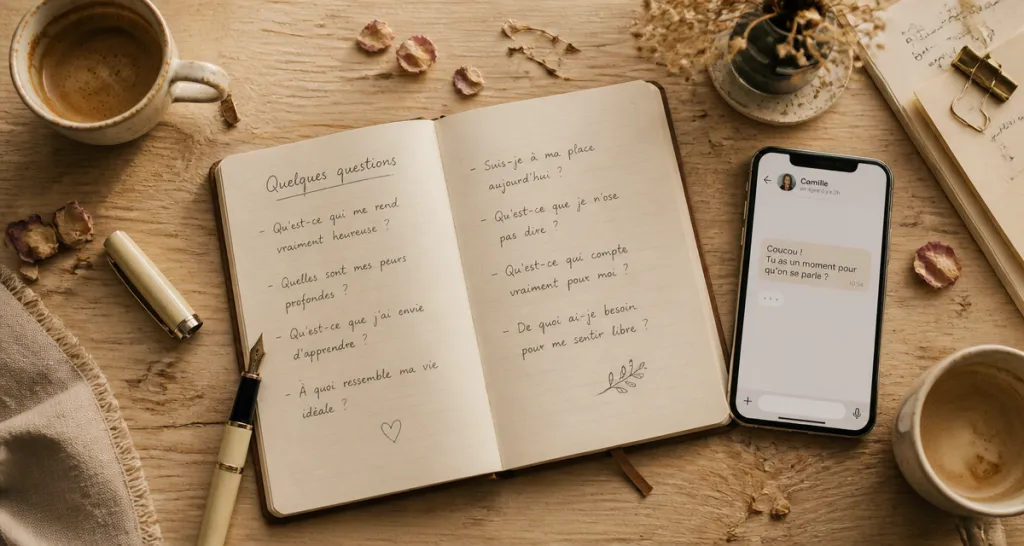 Quelques questions
- Qu'est-ce qui me rend
vraiment heureuse ?
- Quelles sont mes peurs
profondes ?
- Qu'est-ce que j'ai envie
d'apprendre ?
- À quoi ressemble ma vie
idéale ?
- Suis-je à ma place
aujourd'hui ?
- Qu'est-ce que je n'ose
pas dire ?
- Qu'est-ce qui compte
vraiment pour moi ?
- De quoi ai-je besoin
pour me sentir libre ?
Camille
Coucou !
Tu as un moment pour
qu'on se parle ?